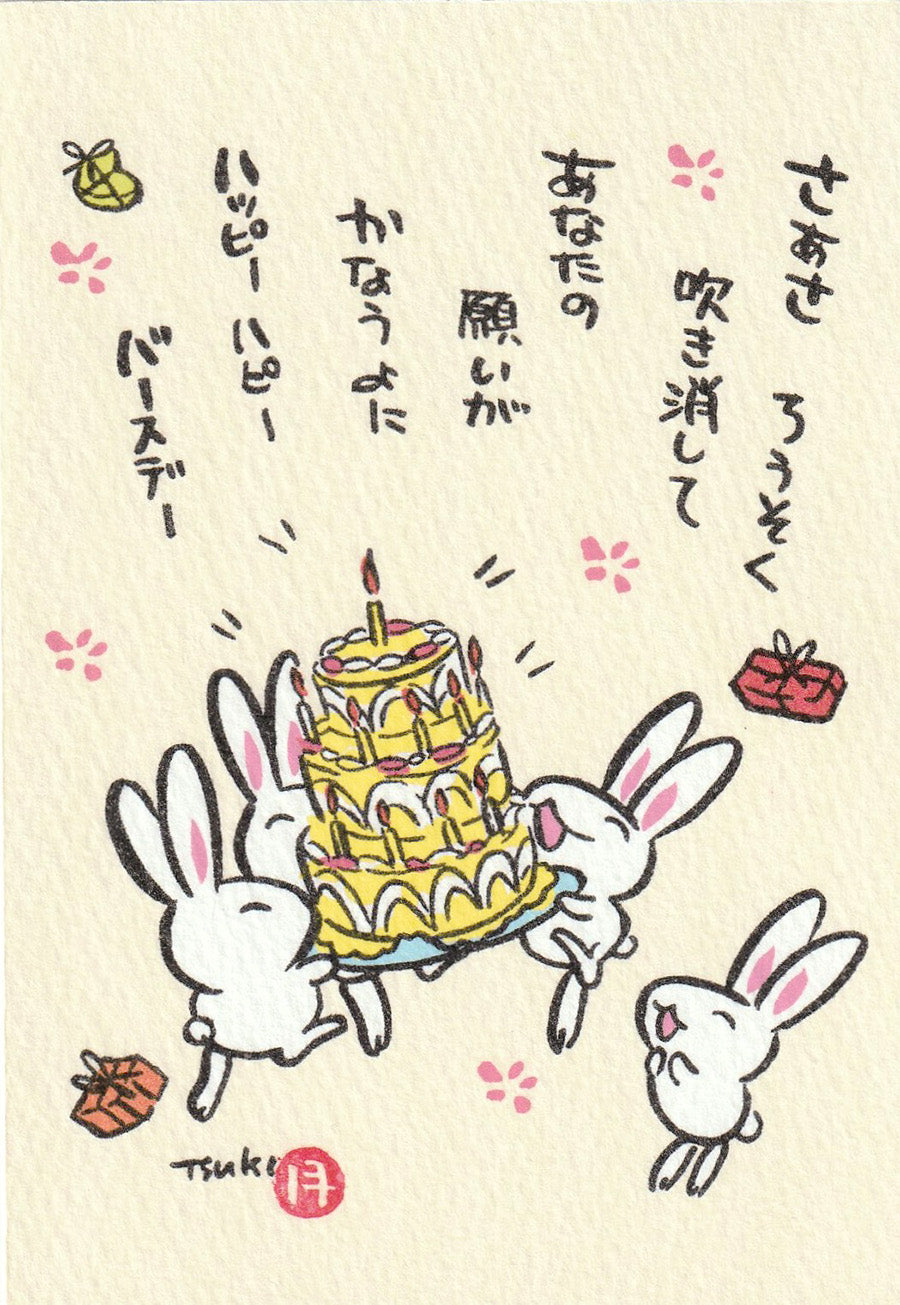 さあさ ろうそく
吹き消して
あなたの
願いが
かなうよに
ハッピー ハピー
バースデー
Tsuki